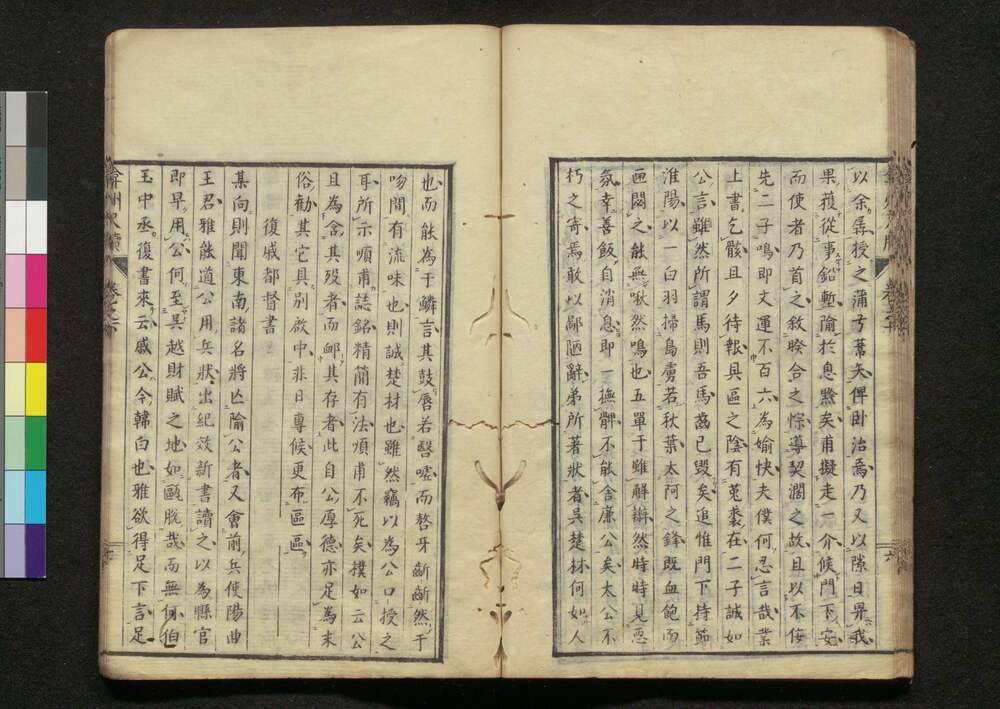 以余尋授之蒲芧葦矣俾卧治焉乃又以隙日畀我
果獲從事鉛槧隃於息黥矣甫擬走一介候門下安
而使者乃首之敘暌合之悰導契濶之故且以不佞
先二子鳴即文運不百六為媮快夫僕何忍言哉業
上書乞骸且夕待報具區之陰有菟裘在二子誠如
公言雖然所謂馬則吾馬齒已毀矣追惟門下持節
淮陽以一白羽掃島虜若秋葉太阿之鋒既血飽而
匣閟之能無啾然鳴也五單于雖解辮然時時見惡
氛幸善飯自消息即一撫髀不能舍廉公矣太公不
朽之寄焉敢以鄙陋辭弟所著狀者吳楚材何如人
也而能為于鱗言其鼓唇若毉噓而嗸牙齗齗然于
吻間有流味也則誠楚材也雖然竊以為公口授之
耳所示順甫誌銘精簡有法順甫不死矣撲如云公
且為舍其歿者而邺其存者此自公厚德亦足為末
俗勸其它具別啟中非日專候更布區區
復戚都督書
某向則聞東南諸名將亡隃公者又會前兵使陽曲
王君雅能道公用兵狀出紀效新書讀之以為縣官
即早用公何至吳越財賦之地如甌脫哉而無何伯
玉中丞復書來云戚公今韓白也雅欲得足下言足
六